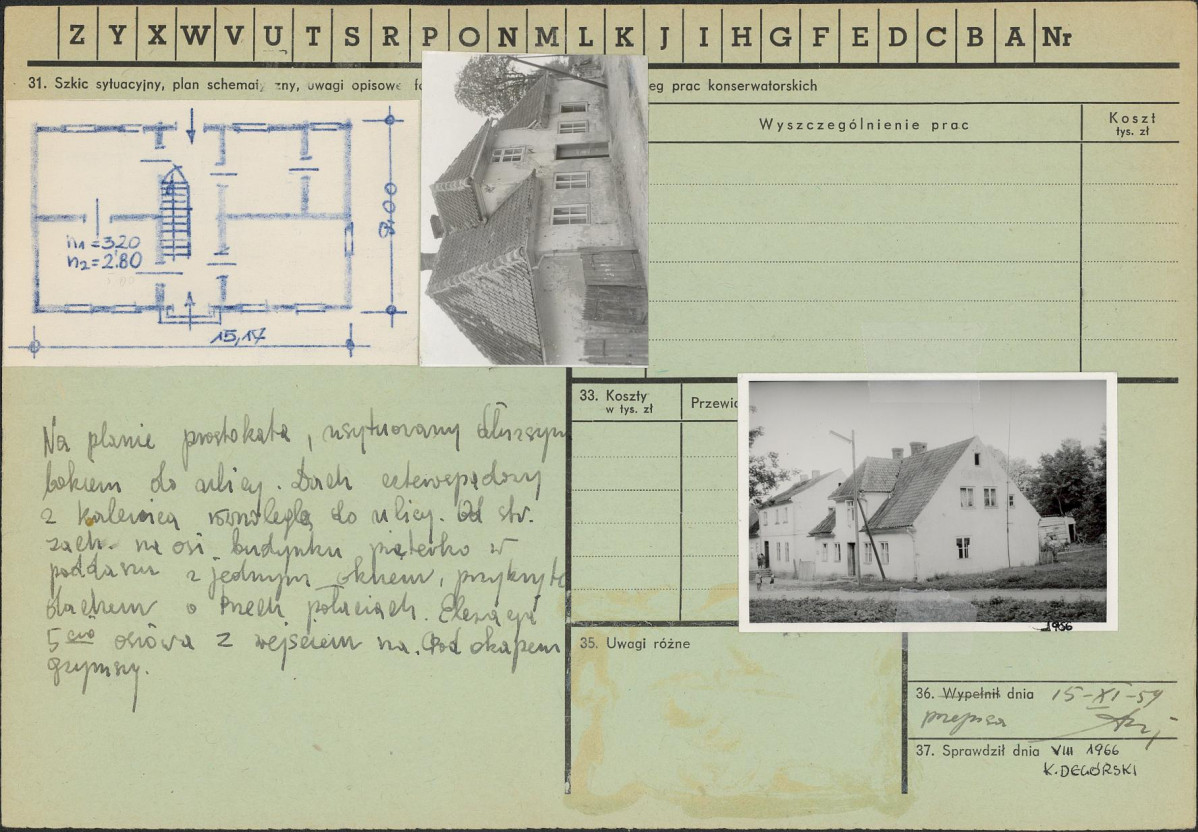 Z Y X W V U T S R P O N M L K J I H G F E D C B A Nr
31. Szkic sytuacyjny, plan schematyczny, uwagi opisowe eg prac konserwatorskich
Wyszczególnienie prac
Koszt
tys. zł
h1 = 3.20
h2 = 2.80
15,17
33. Koszty
w tys. zł
Przewid
Na planie prostokąta, usytuowany dłuższym
bokiem do ulicy. Dach czterospadowy
z kalenicą równoległą do ulicy. Od str.
zach. na osi budynku piąterko w
poddaszu z jednym oknem, przykryte
dachem o trzech połaciach. Elewacja
5cio osiowa z wejściem na. Pod okapem
gzymsy.
1966
35. Uwagi różne
36. Wypełnił dnia 15-XI-59
przepisa
37. Sprawdził dnia VIII 1966
K. DEGÓRSKI